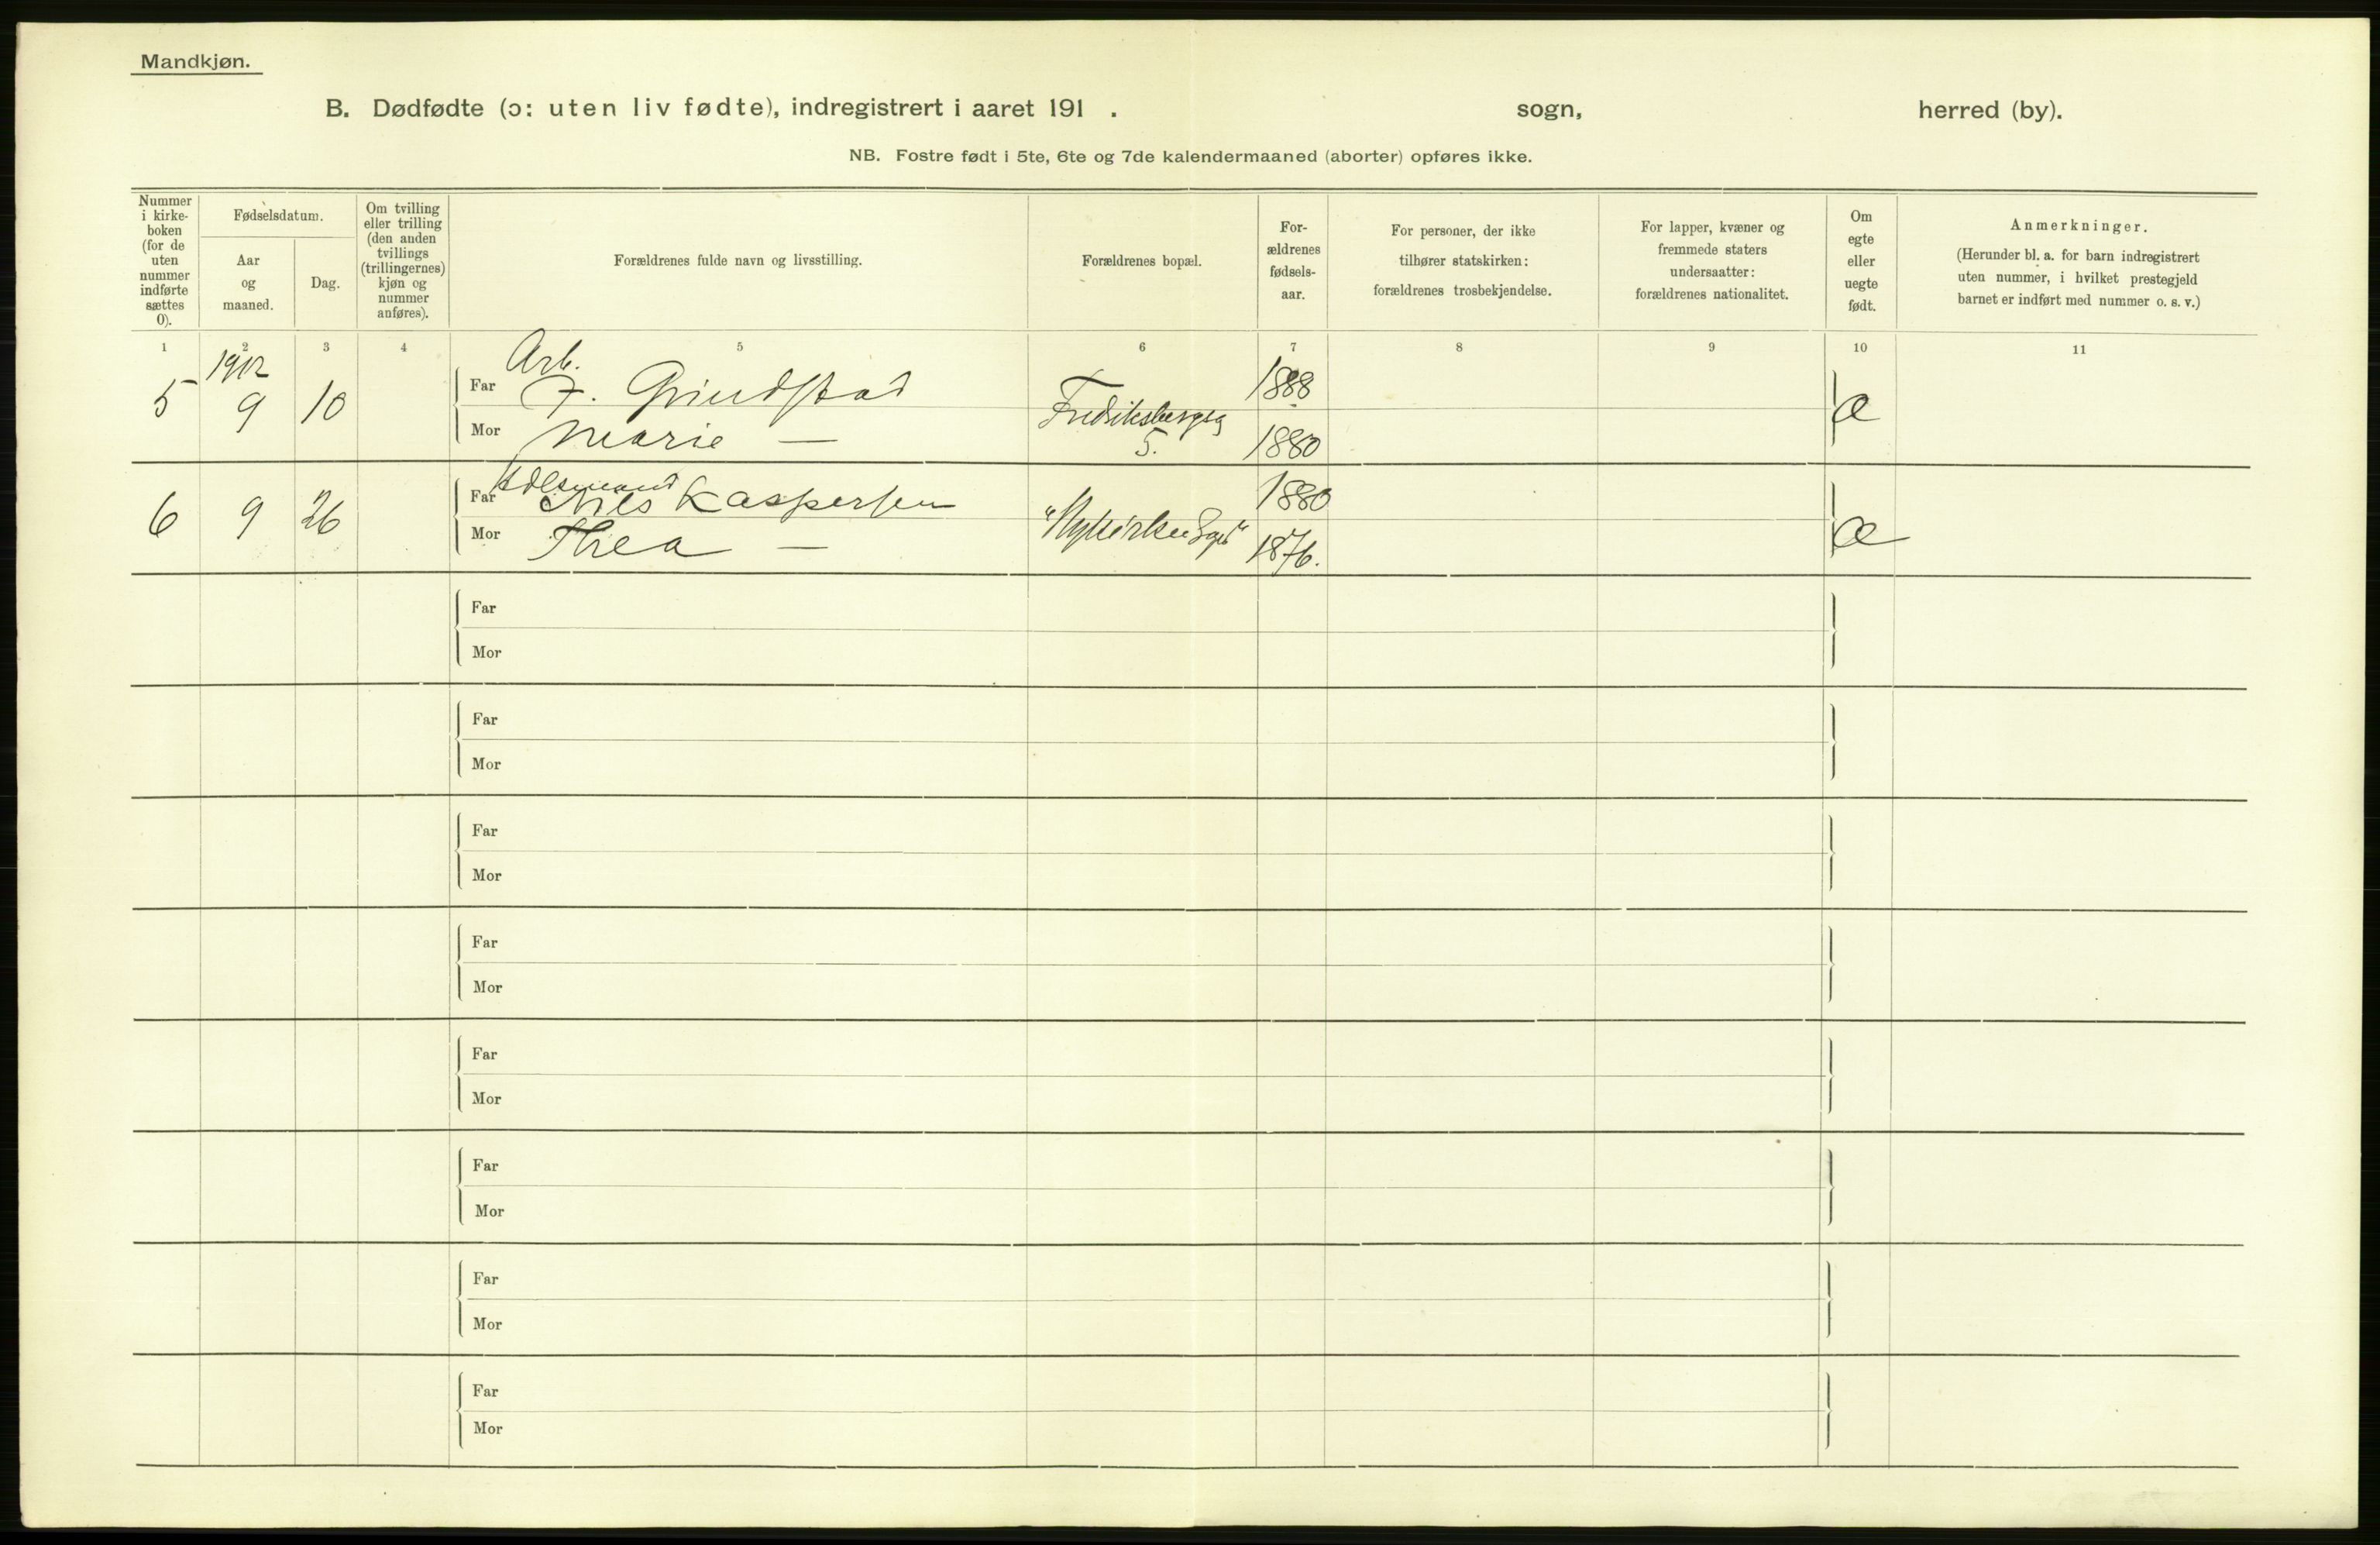 Mandkjøn.
B. Dødfødte (ɔ: uten liv fødte), indregistrert i aaret 191 . sogn, herred (by).
NB. Fostre født i 5te, 6te og 7de kalendermaaned (aborter) opføres ikke.
Nummer
i kirke-
boken
(for de
uten
nummer
indførte
sættes
0).
Fødselsdatum.
Aar
og
maaned.
Dag.
Om tvilling
eller trilling
(den anden
tvillings
(trillingernes)
kjøn og
nummer
anføres).
Forældrenes fulde navn og livsstilling.
Forældrenes bopæl.
For-
ældrenes
fødsels-
aar.
For personer, der ikke
tilhører statskirken:
forældrenes trosbekjendelse.
For lapper, kvæner og
fremmede staters
undersaatter:
forældrenes nationalitet.
Om
egte
eller
uegte
født.
Anmerkninger.
(Herunder bl. a. for barn indregistrert
uten nummer, i hvilket prestegjeld
barnet er indført med nummer o. s. v.)
1 2 3 4 5 6 7 8 9 10 11
1912
Arb.
5 9 10 Far Grindstad 1888
Mor Marie — 5. 1880
6 9 26 Far Nils Kaspersen 1880
Mor Thea — 1876.
Far
Mor
Far
Mor
Far
Mor
Far
Mor
Far
Mor
Far
Mor
Far
Mor
Far
Mor